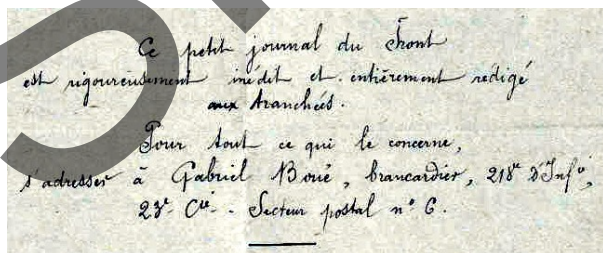 Ce petit journal du Front
est rigoureusement inédit et entièrement rédigé
aux tranchées.
Pour tout ce qui le concerne,
s'adresser à Gabriel Boué, brancardier, 218e d'Infie,
23e Cie - Secteur postal n° 6.